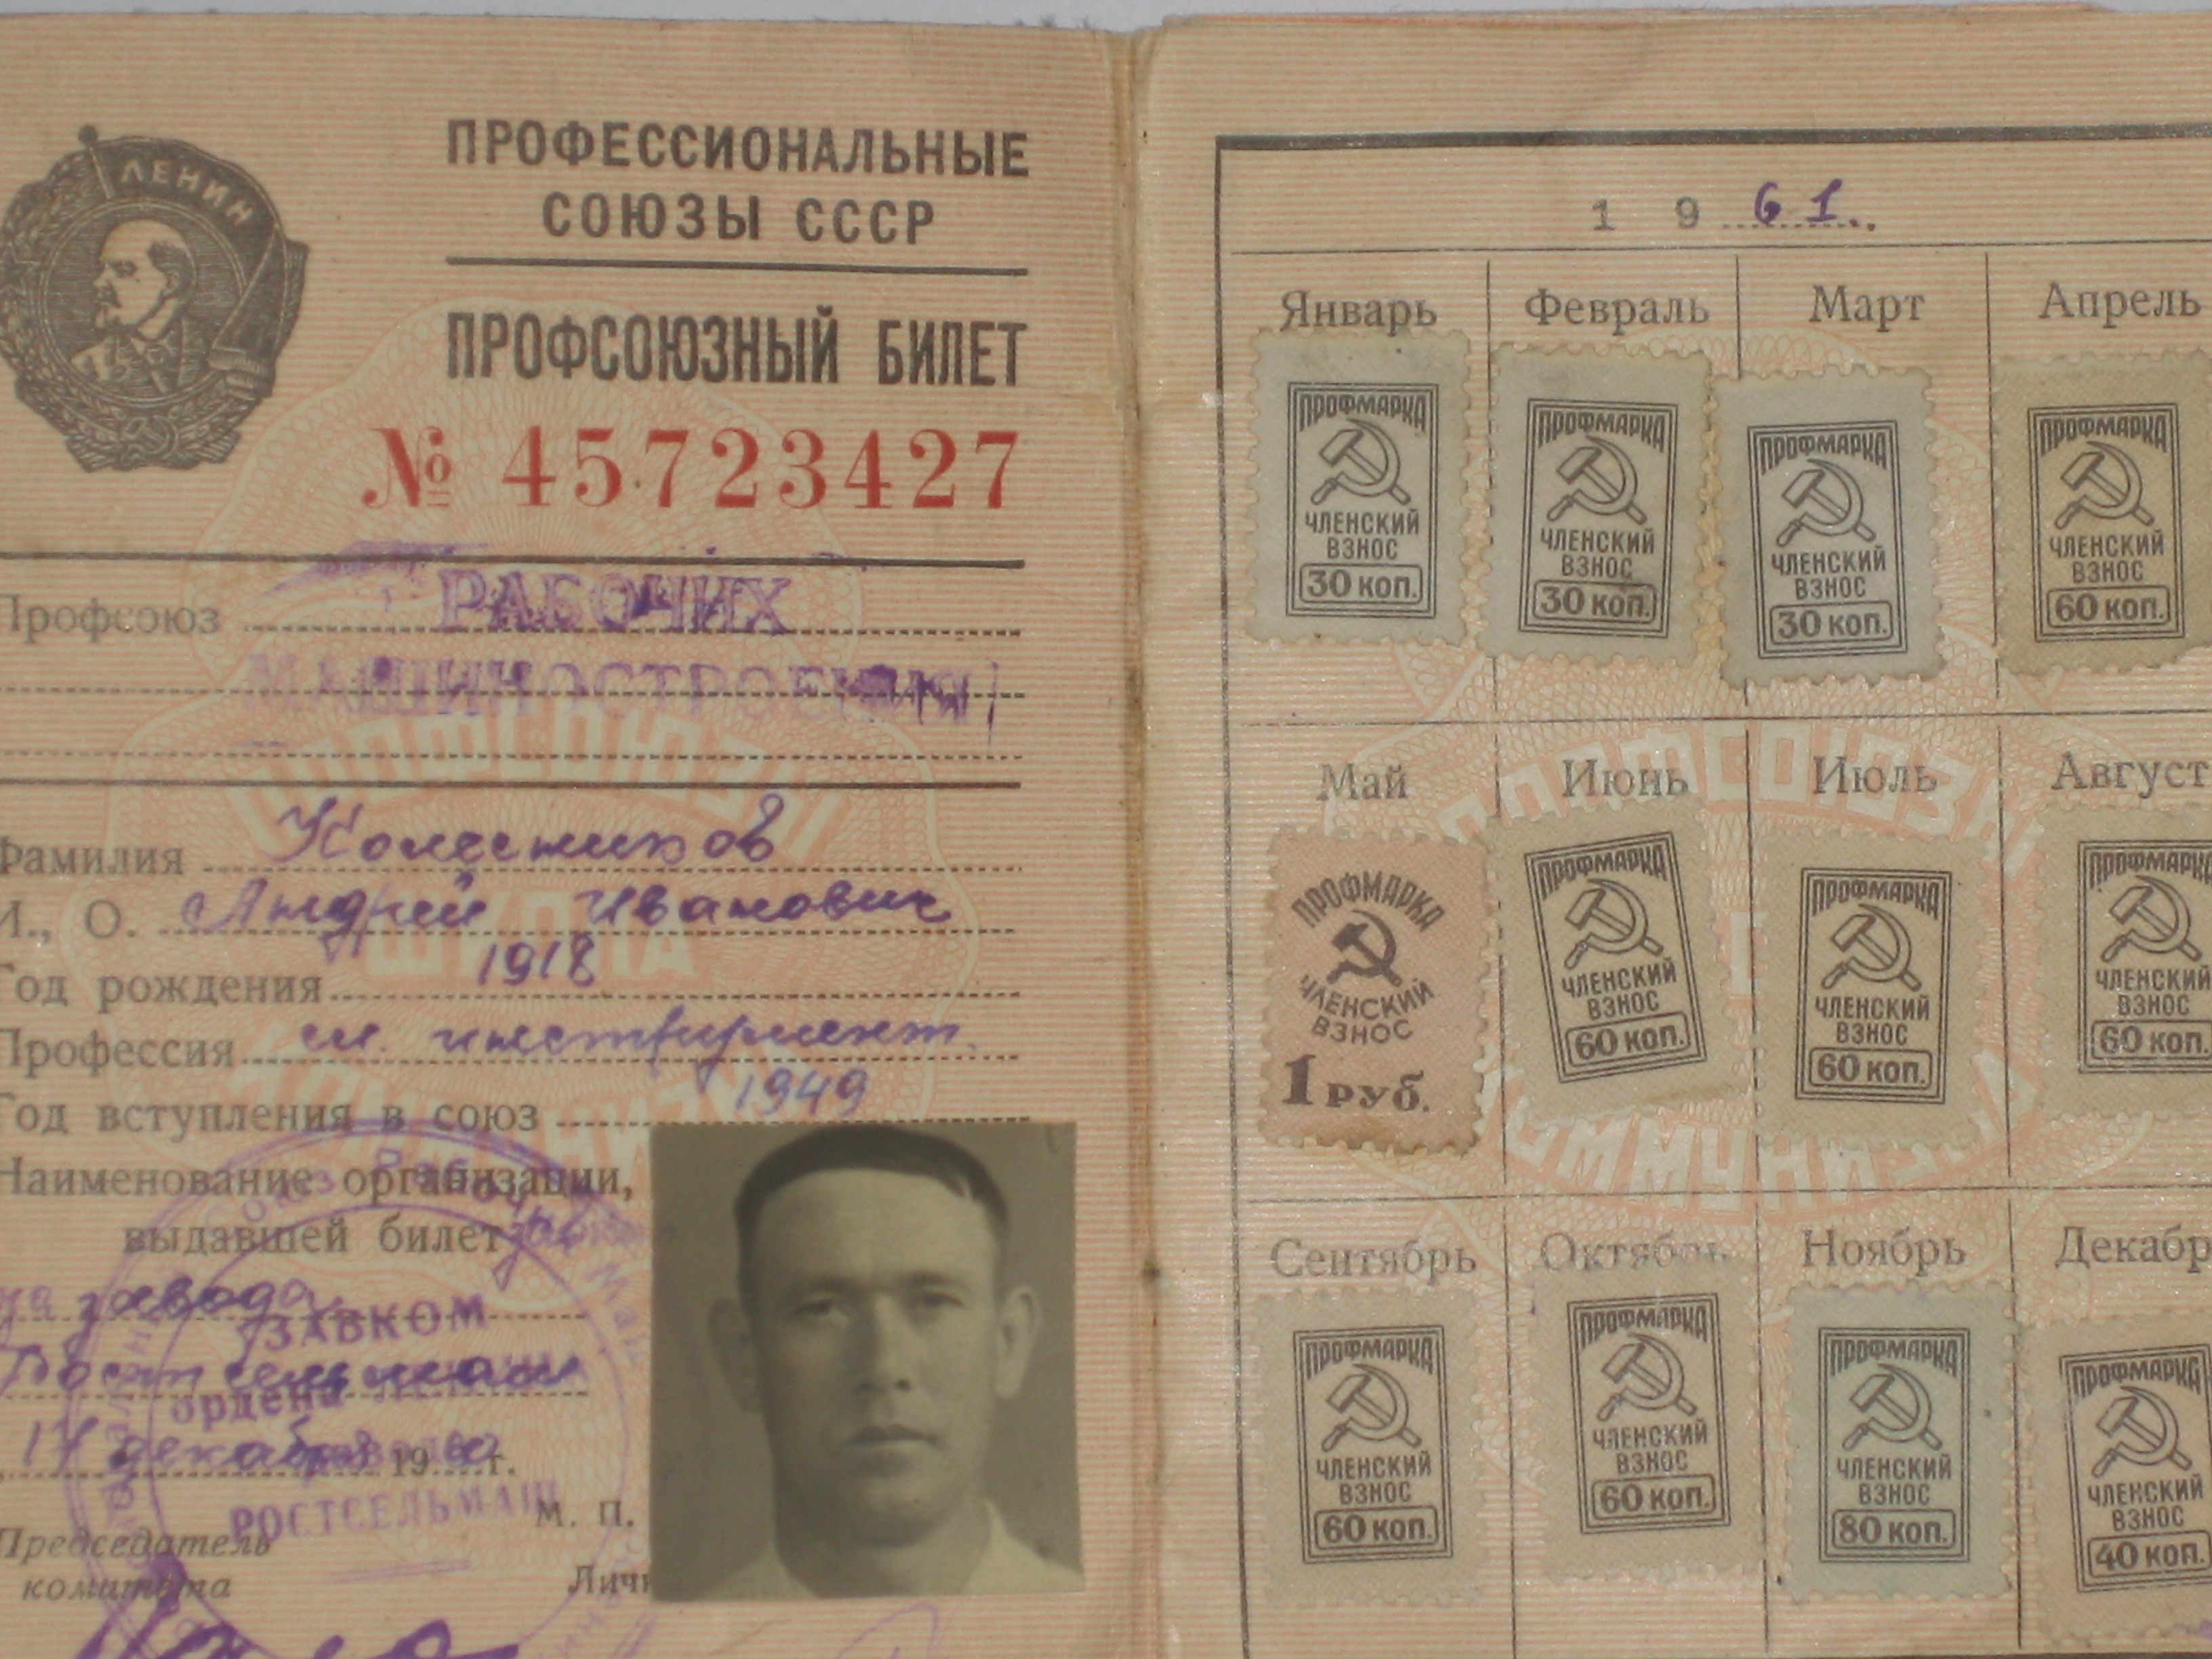 ЛЕНИН
ПРОФЕССИОНАЛЬНЫЕ
СОЮЗЫ СССР
ПРОФСОЮЗНЫЙ БИЛЕТ
№ 45723427
Профсоюз РАБОЧИХ
МАШИНОСТРОЕНИЯ
Фамилия Колесников
И., О. Андрей Иванович
Год рождения 1918
Профессия сл. инструмент.
Год вступления в союз 1949
Наименование организации,
выдавшей билет
завода
Ростсельмаш
17 декабря 1960 г.
ЗАВКОМ
ордена
РОСТСЕЛЬМАШ
М. П.
Председатель
комитета
ПРОФСОЮЗЫ
ШКОЛА
КОММУНИЗМА
1961.
Январь Февраль Март Апрель
ПРОФМАРКА ЧЛЕНСКИЙ ВЗНОС 30 КОП.
ПРОФМАРКА ЧЛЕНСКИЙ ВЗНОС 30 КОП.
ПРОФМАРКА ЧЛЕНСКИЙ ВЗНОС 30 КОП.
ПРОФМАРКА ЧЛЕНСКИЙ ВЗНОС 60 КОП.
Май Июнь Июль Август
ПРОФМАРКА ЧЛЕНСКИЙ ВЗНОС 1 РУБ.
ПРОФМАРКА ЧЛЕНСКИЙ ВЗНОС 60 КОП.
ПРОФМАРКА ЧЛЕНСКИЙ ВЗНОС 60 КОП.
ПРОФМАРКА ЧЛЕНСКИЙ ВЗНОС 60 КОП.
Сентябрь Октябрь Ноябрь Декабр
ПРОФМАРКА ЧЛЕНСКИЙ ВЗНОС 60 КОП.
ПРОФМАРКА ЧЛЕНСКИЙ ВЗНОС 60 КОП.
ПРОФМАРКА ЧЛЕНСКИЙ ВЗНОС 80 КОП.
ПРОФМАРКА ЧЛЕНСКИЙ ВЗНОС 40 КОП.